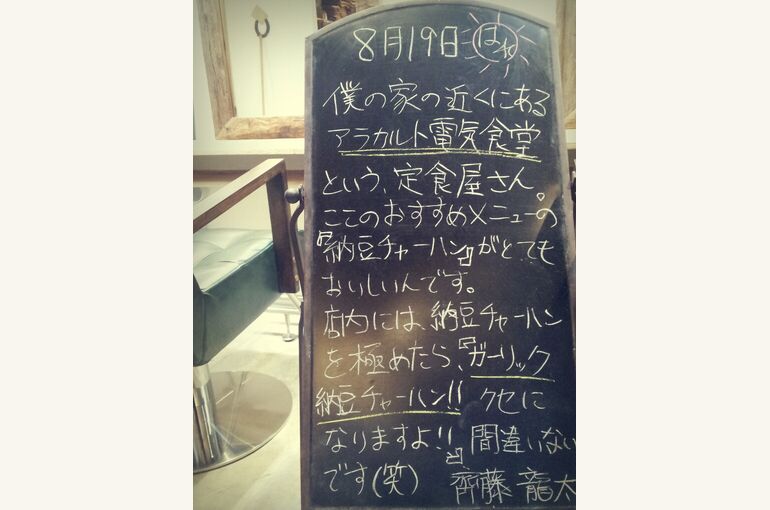 8月19日 はれ
僕の家の近くにある
アラカルト電気食堂
という、定食屋さん。
ここのおすすめメニューの
『納豆チャーハン』がとても
おいしいんです。
店内には、納豆チャーハン
を極めたら、『ガーリック
納豆チャーハン!! クセに
なりますよ!!』間違いない
です(笑) 齊藤 龍太